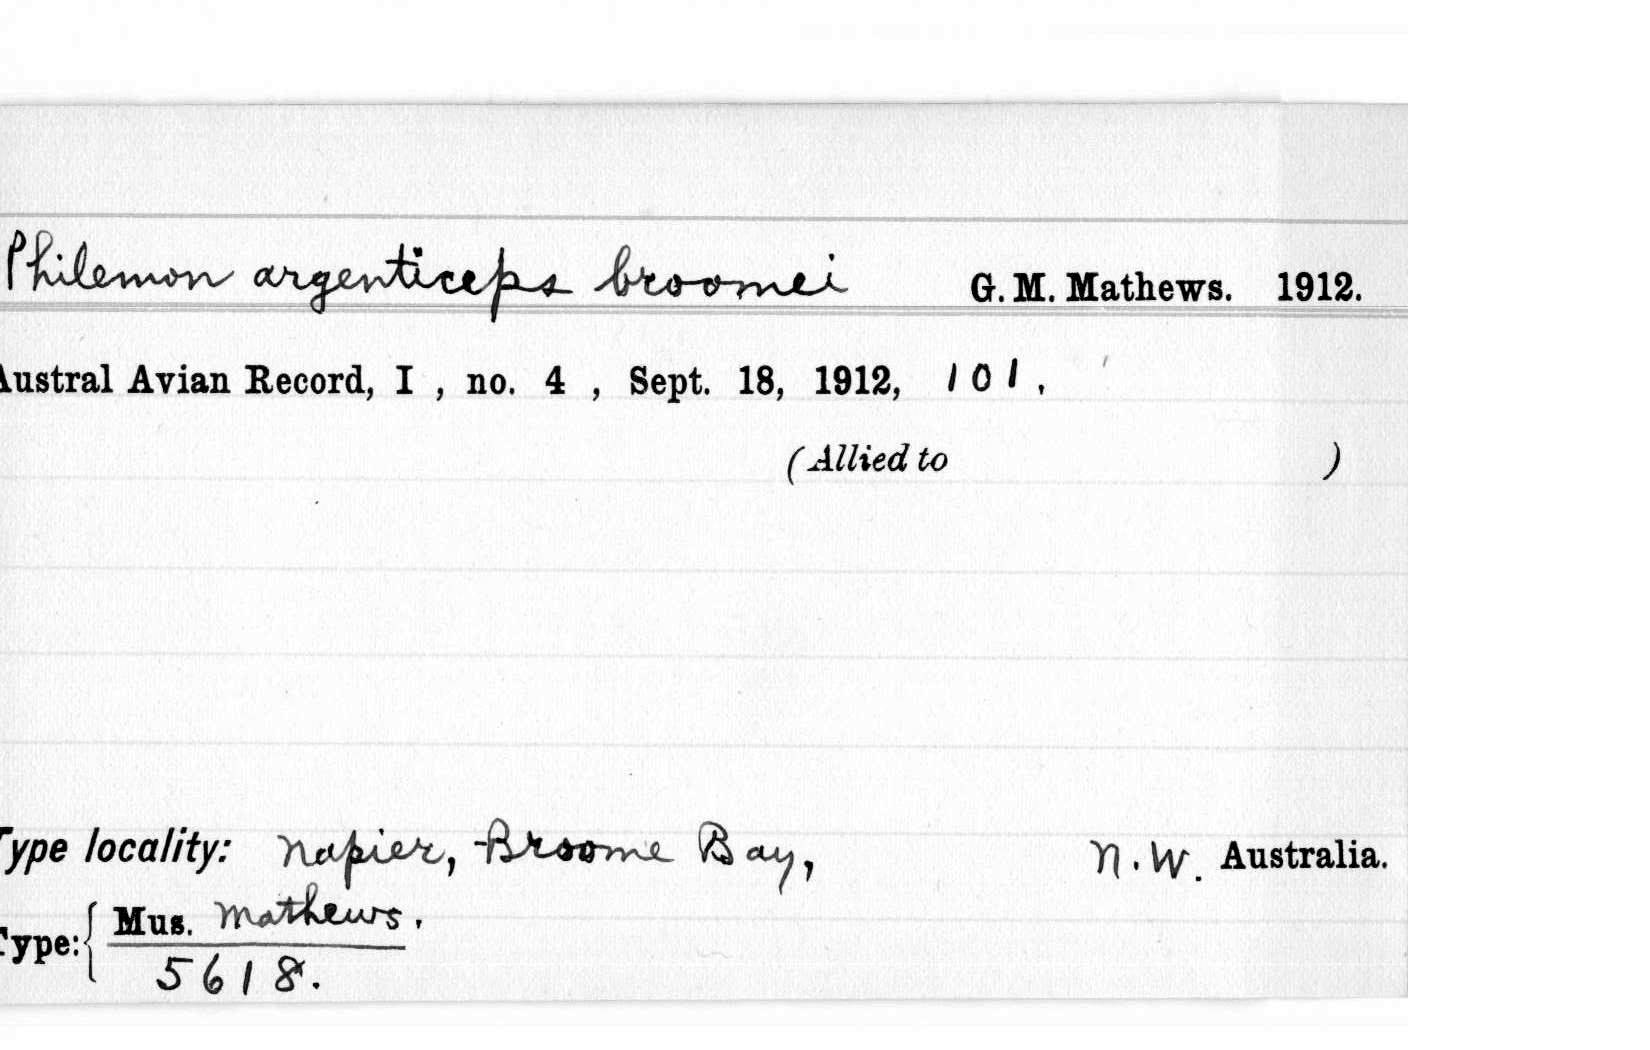 Philemon argenticeps broomei G. M. Mathews. 1912.
Austral Avian Record, I , no. 4 , Sept. 18, 1912, 101.
(Allied to )
Type locality: Napier, Broome Bay, N.W. Australia.
Type: { Mus. Mathews.
5618.